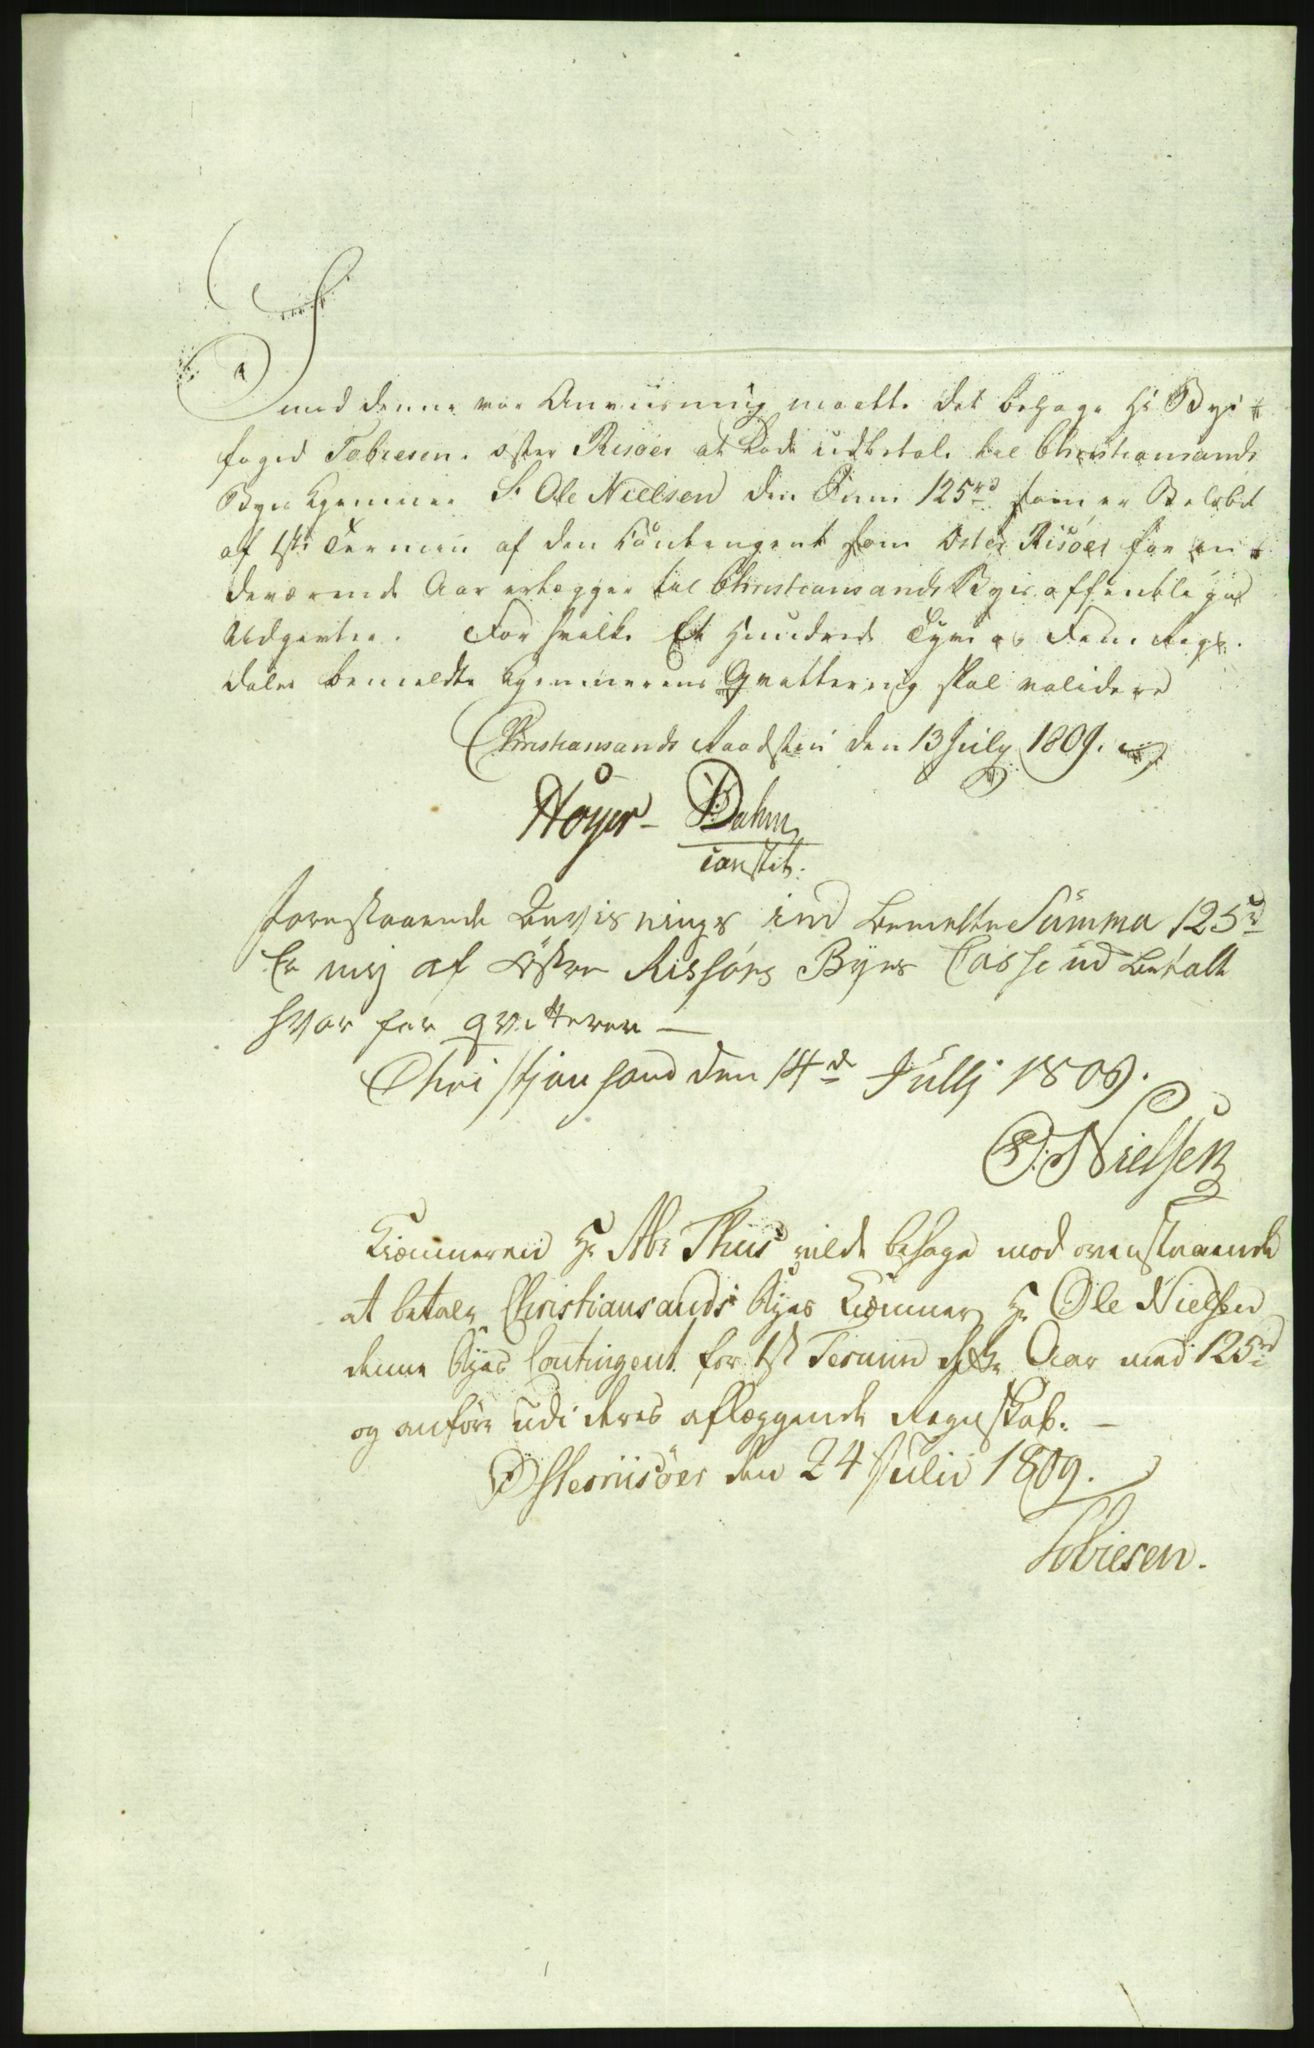 Imod denne vor Anviisning maatte det behage Hr Bye-
foged Tobiesen i Øster Riisøer at lade udbetale til Christiansands
Byes Kjemner Sr Ole Nielsen den Sum 125 rd som er Beløbet
af 1ste Termin af den Contingent som Oster Riisöer for in-
deværende Aar erlægger til Christiansands Byes offentlige
Udgivter. For hvilke Et Hundrede Tyve og Fem Rigs-
daler bemeldte Kjemnerens Qvittering skal validere
Christiansands Raadstue den 13 July 1809.
Höyer - Dahm
constit.
forestaaende Anvisnings ind bemelte Summa 125 rd
Er mig af Öster Rissörs Byes Casse ud betalt
hvor for qvitterer —
Christjansand den 14de Jullj 1809.
O: Nielsen
Kiæmneren Hr Abr Thiis vilde behage mod ovenstaaende
at betale Christiansands Byes Kiæmner Hr Ole Nielsen
denne Byes Contingent for 1ste Termin dette Aar med 125 rd
og anføre udi deres aflæggende Regnskab. —
Østerriisöer den 24 Julii 1809.
Tobiesen.